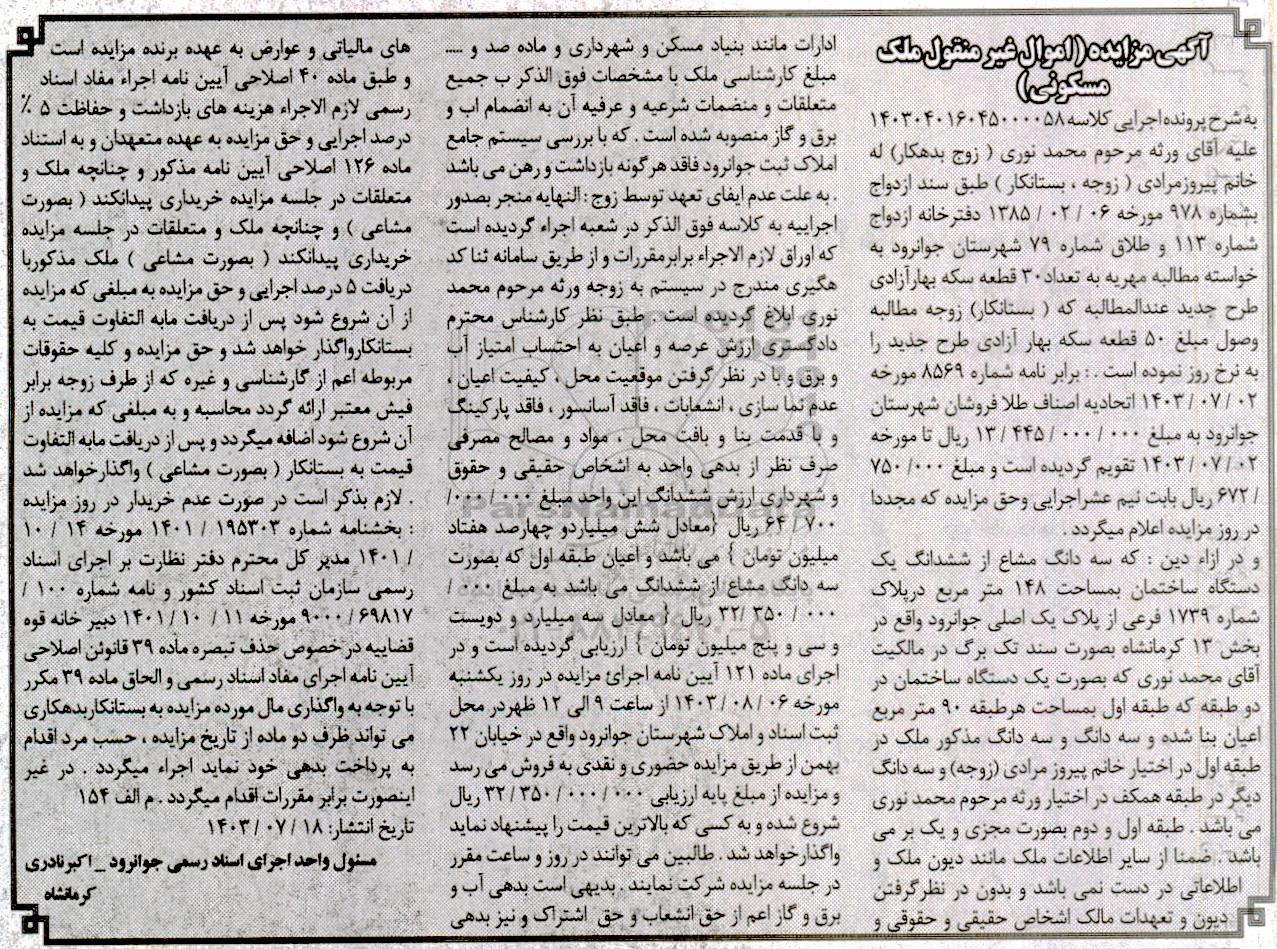 آگهی مزایده (اموال غیر منقول ملک
مسکونی)
به شرح پرونده اجرایی کلاسه ۱۴۰۳۰۴۰۱۶۰۴۵۰۰۰۰۵۸
علیه آقای ورثه مرحوم محمد نوری ( زوج بدهکار) له
خانم پیروزمرادی ( زوجه ، بستانکار ) طبق سند ازدواج
بشماره ۹۷۸ مورخه ۰۶ / ۰۲ / ۱۳۸۵ دفترخانه ازدواج
شماره ۱۱۳ و طلاق شماره ۷۹ شهرستان جوانرود به
خواسته مطالبه مهریه به تعداد۳۰ قطعه سکه بهارآزادی
طرح جدید عندالمطالبه که ( بستانکار) زوجه مطالبه
وصول مبلغ ۵۰ قطعه سکه بهار آزادی طرح جدید را
به نرخ روز نموده است . : برابر نامه شماره ۸۵۶۹ مورخه
۰۲ / ۰۷ / ۱۴۰۳ اتحادیه اصناف طلا فروشان شهرستان
جوانرود به مبلغ ۰۰۰ / ۰۰۰ / ۴۴۵ / ۱۳ ریال تا مورخه
۰۲ / ۰۷ / ۱۴۰۳ تقویم گردیده است و مبلغ ۰۰۰/ ۷۵۰
/ ۶۷۲ ریال بابت نیم عشراجرایی وحق مزایده که مجددا
در روز مزایده اعلام میگردد .
و در ازاء دین : که سه دانگ مشاع از ششدانگ یک
دستگاه ساختمان بمساحت ۱۴۸ متر مربع درپلاک
شماره ۱۷۳۹ فرعی از پلاک یک اصلی جوانرود واقع در
بخش ۱۳ کرمانشاه بصورت سند تک برگ در مالکیت
آقای محمد نوری که بصورت یک دستگاه ساختمان در
دو طبقه که طبقه اول بمساحت هرطبقه ۹۰ متر مربع
اعیان بنا شده و سه دانگ و سه دانگ مذکور ملک در
طبقه اول در اختیار خانم پیروز مرادی (زوجه) و سه دانگ
دیگر در طبقه همکف در اختیار ورثه مرحوم محمد نوری
می باشد . طبقه اول و دوم بصورت مجزی و یک بر می
باشد . ضمنا از سایر اطلاعات ملک مانند دیون ملک و
اطلاعاتی در دست نمی باشد و بدون در نظرگرفتن
دیون و تعهدات مالک اشخاص حقیقی و حقوقی و
ادارات مانند بنیاد مسکن و شهرداری و ماده صد و .....
مبلغ کارشناسی ملک با مشخصات فوق الذکر ب جمیع
متعلقات و منضمات شرعیه و عرفیه آن به انضمام اب و
برق و گاز منصوبه شده است . که با بررسی سیستم جامع
املاک ثبت جوانرود فاقد هرگونه بازداشت و رهن می باشد
. به علت عدم ایفای تعهد توسط زوج : النهایه منجر بصدور
اجراییه به کلاسه فوق الذکر در شعبه اجراء گردیده است
که اوراق لازم الاجراء برابرمقررات و از طریق سامانه ثنا کد
هگیری مندرج در سیستم به زوجه ورثه مرحوم محمد
نوری ابلاغ گردیده است . طبق نظر کارشناس محترم
دادگستری ارزش عرصه و اعیان به احتساب امتیاز آب
و برق و با در نظر گرفتن موقعیت محل ، کیفیت اعیان ،
عدم نما سازی ، انشعابات ، فاقد آسانسور ، فاقد پارکینگ
و با قدمت بنا و بافت محل ، مواد و مصالح مصرفی
صرف نظر از بدهی واحد به اشخاص حقیقی و حقوق
و شهرداری ارزش ششدانگ این واحد مبلغ ۰۰۰ / ۰۰۰/
۷۰۰ / ۶۴ ریال {معادل شش میلیاردو چهارصد هفتاد
میلیون تومان } می باشد و اعیان طبقه اول که بصورت
سه دانگ مشاع از ششدانگ می باشد به مبلغ ۰۰۰ /
۰۰۰ / ۳۵۰ /۳۲ ریال { معادل سه میلیارد و دویست
و سی و پنج میلیون تومان } ارزیابی گردیده است و در
اجرای ماده ۱۲۱ آیین نامه اجرائ مزایده در روز یکشنبه
مورخه ۰۶ / ۰۸ / ۱۴۰۳ از ساعت ۹ الی ۱۲ ظهردر محل
ثبت اسناد و املاک شهرستان جوانرود واقع در خیابان ۲۲
بهمن از طریق مزایده حضوری و نقدی به فروش می رسد
و مزایده از مبلغ پایه ارزیابی ۰۰۰ / ۰۰۰ / ۳۵۰ / ۳۲ ریال
شروع شده و به کسی که بالاترین قیمت را پیشنهاد نماید
واگذارخواهد شد . طالبین می توانند در روز و ساعت مقرر
در جلسه مزایده شرکت نمایند . بدیهی است بدهی آب و
برق و گاز اعم از حق انشعاب و حق اشتراک و نیز بدهی
های مالیاتی و عوارض به عهده برنده مزایده است
و طبق ماده ۴۰ اصلاحی آیین نامه اجراء مفاد اسناد
رسمی لازم الاجراء هزینه های بازداشت و حفاظت ۵ ٪
درصد اجرایی و حق مزایده به عهده متعهدان و به استناد
ماده ۱۲۶ اصلاحی آیین نامه مذکور و چنانچه ملک و
متعلقات در جلسه مزایده خریداری پیدانکند ( بصورت
مشاعی ) و چنانچه ملک و متعلقات در جلسه مزایده
خریداری پیدانکند ( بصورت مشاعی ) ملک مذکوربا
دریافت ۵ درصد اجرایی و حق مزایده به مبلغی که مزایده
از آن شروع شود پس از دریافت مابه التفاوت قیمت به
بستانکارواگذار خواهد شد و حق مزایده و کلیه حقوقات
مربوطه اعم از گارشناسی و غیره که از طرف زوجه برابر
فیش معتبر ارائه گردد محاسبه و به مبلغی که مزایده از
آن شروع شود اضافه میگردد و پس از دریافت مابه التفاوت
قیمت به بستانکار ( بصورت مشاعی ) واگذارخواهد شد
. لازم بذکر است در صورت عدم خریدار در روز مزایده
: بخشنامه شماره ۱۹۵۳۰۳ / ۱۴۰۱ مورخه ۱۴ / ۱۰
/ ۱۴۰۱ مدیر کل محترم دفتر نظارت بر اجرای اسناد
رسمی سازمان ثبت اسناد کشور و نامه شماره ۱۰۰ /
۶۹۸۱۷ / ۹۰۰۰ مورخه ۱۱ / ۱۰ / ۱۴۰۱ دبیر خانه قوه
قضاییه در خصوص حذف تبصره ماده ۳۹ قانوئن اصلاحی
آیین نامه اجرای مفاد اسناد رسمی و الحاق ماده ۳۹ مکرر
با توجه به واگذاری مال مورده مزایده به بستانکاربدهکاری
می تواند ظرف دو ماده از تاریخ مزایده ، حسب مرد اقدام
به پرداخت بدهی خود نماید اجراء میگردد . در غیر
اینصورت برابر مقررات اقدام میگردد . م الف ۱۵۴
تاریخ انتشار: ۱۸ / ۰۷ / ۱۴۰۳
مسئول واحد اجرای اسناد رسمی جوانرود _ اکبرنادری
کرمانشاه